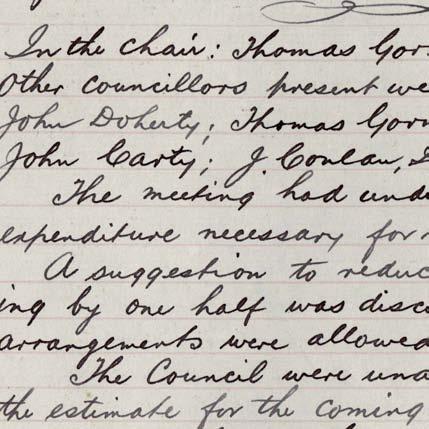 In the chair: Thomas Gor
Other councillors present we
John Doherty; Thomas Gor
John Carty; J. Conlan, J
The meeting had und
expenditure necessary for
A suggestion to reduc
ing by one half was disc
arrangements were allowed
The Council were una
the estimate for the coming